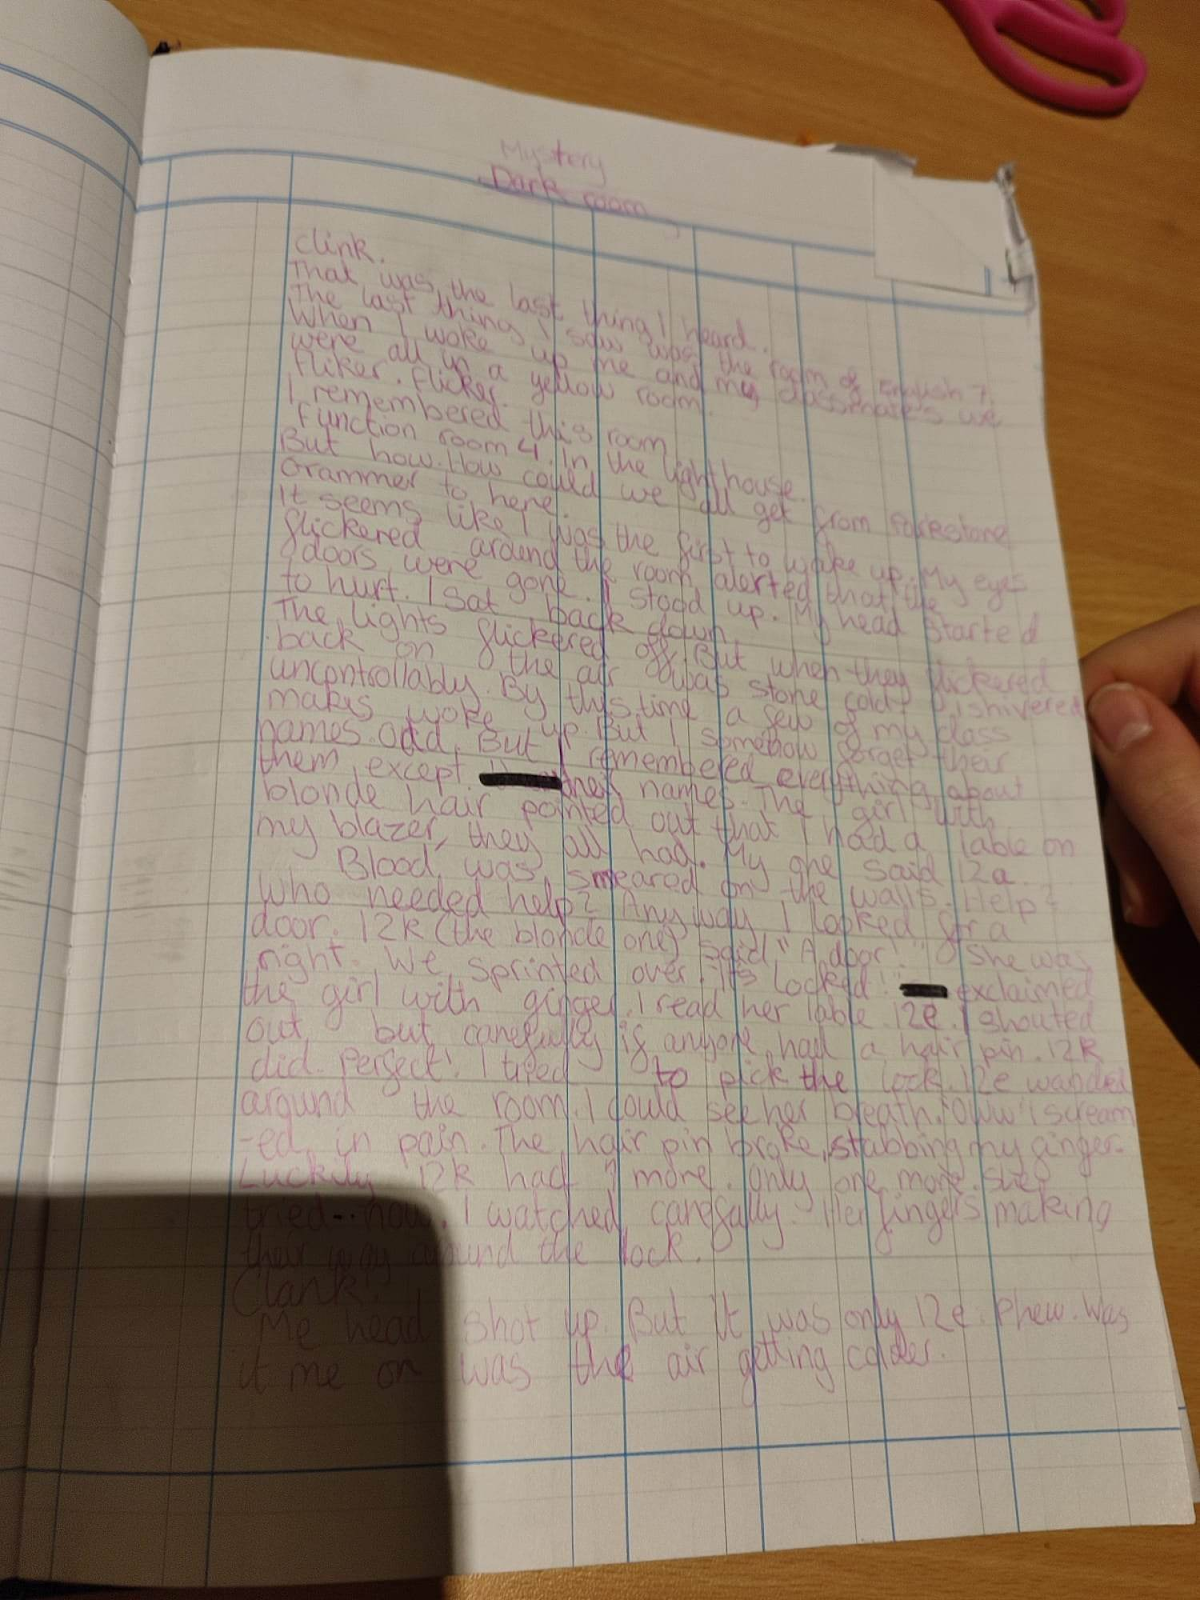 Mystery
Dark room
clink.
That was the last thing I heard.
The last thing I saw was the room of English 7.
When I woke up me and my classmates we
were all in a yellow room.
fliker. flicker.
I remembered this room
function room 4. In the lighthouse.
But how. How could we all get from folkestone
Grammer to here.
It seems like I was the first to wake up. My eyes
flickered around the room, alerted that the
doors were gone. I stood up. My head started
to hurt. I sat back down.
The lights flickered off. But when they flickered
back on the air was stone cold. I shivered
uncontrollably. By this time a few of my class
makes woke up. But I somehow forget their
names. Odd. But I remembered everything about
them except their names. The girl with
blonde hair pointed out that I had a lable on
my blazer, they all had. My one said 12a.
Blood was smeared on the walls. Help?
Who needed help? Any way I looked for a
door. 12k (the blonde one) said, "A door!" She was
right. We sprinted over. "its locked!" exclaimed
the girl with ginger. I read her lable. 12e. I shouted
out but carefully if anyone had a hair pin. 12k
did. Perfect! I tried to pick the lock. 12e wanded
around the room. I could see her breath. "Oww" I scream
-ed in pain. The hair pin broke, stabbing my finger.
Luckily 12k had 1 more. only one more. She
tried.. now. I watched carefully. Her fingers making
their way around the lock.
Clank.
Me head shot up. But it was only 12e. Phew. Was
it me or was the air getting colder.